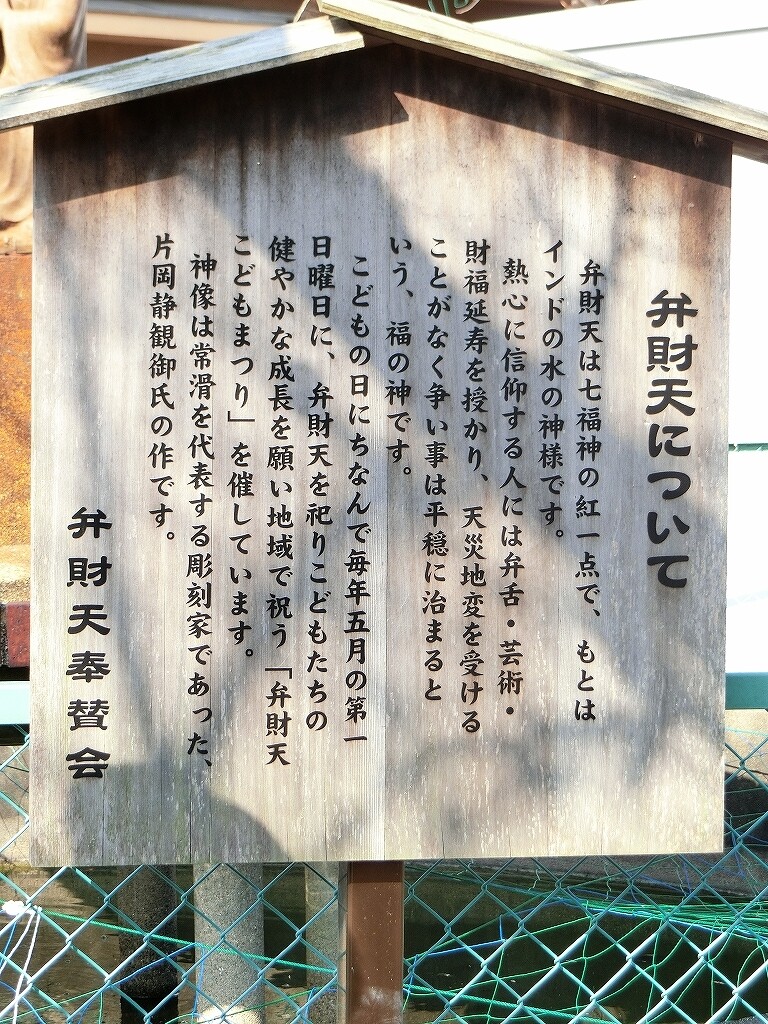 弁財天について
弁財天は七福神の紅一点で、もとは
インドの水の神様です。
熱心に信仰する人には弁舌・芸術・
財福延寿を授かり、天災地変を受ける
ことがなく争い事は平穏に治まると
いう、福の神です。
こどもの日にちなんで毎年五月の第一
日曜日に、弁財天を祀りこどもたちの
健やかな成長を願い地域で祝う「弁財天
こどもまつり」を催しています。
神像は常滑を代表する彫刻家であった、
片岡静観御氏の作です。
弁財天奉賛会